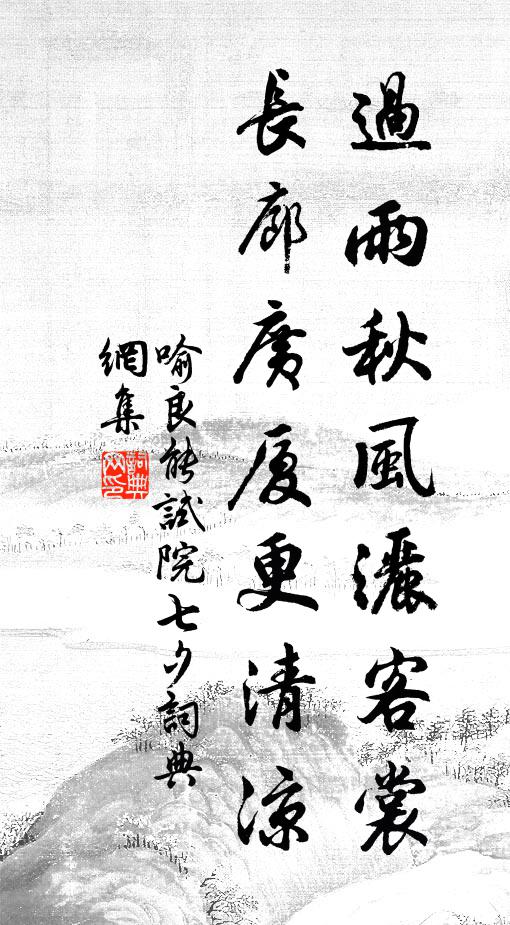 過雨秋風灑客裳
長廊廣厦更清涼
喻良能試院七夕詞典
網集
詞典網印